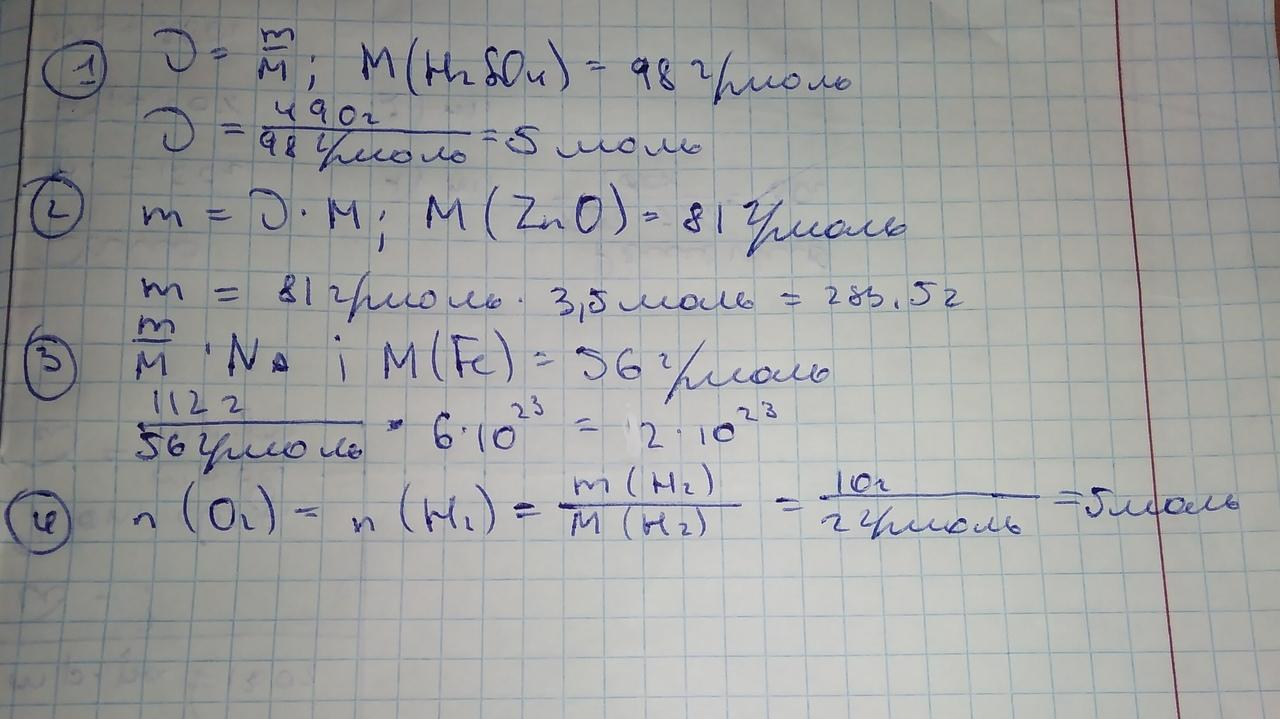 ① ν = m/M ; M(H₂SO₄) = 98 г/моль
ν = 490г / 98 г/моль = 5 моль
② m = ν · M ; M(ZnO) = 81 г/моль
m = 81 г/моль · 3,5 моль = 283,5 г
③ m/M · Nₐ ; M(Fe) = 56 г/моль
112 г / 56 г/моль · 6·10²³ = 2·10²³
④ n(O₂) = n(H₂) = m(H₂) / M(H₂) = 10г / 2 г/моль = 5 моль